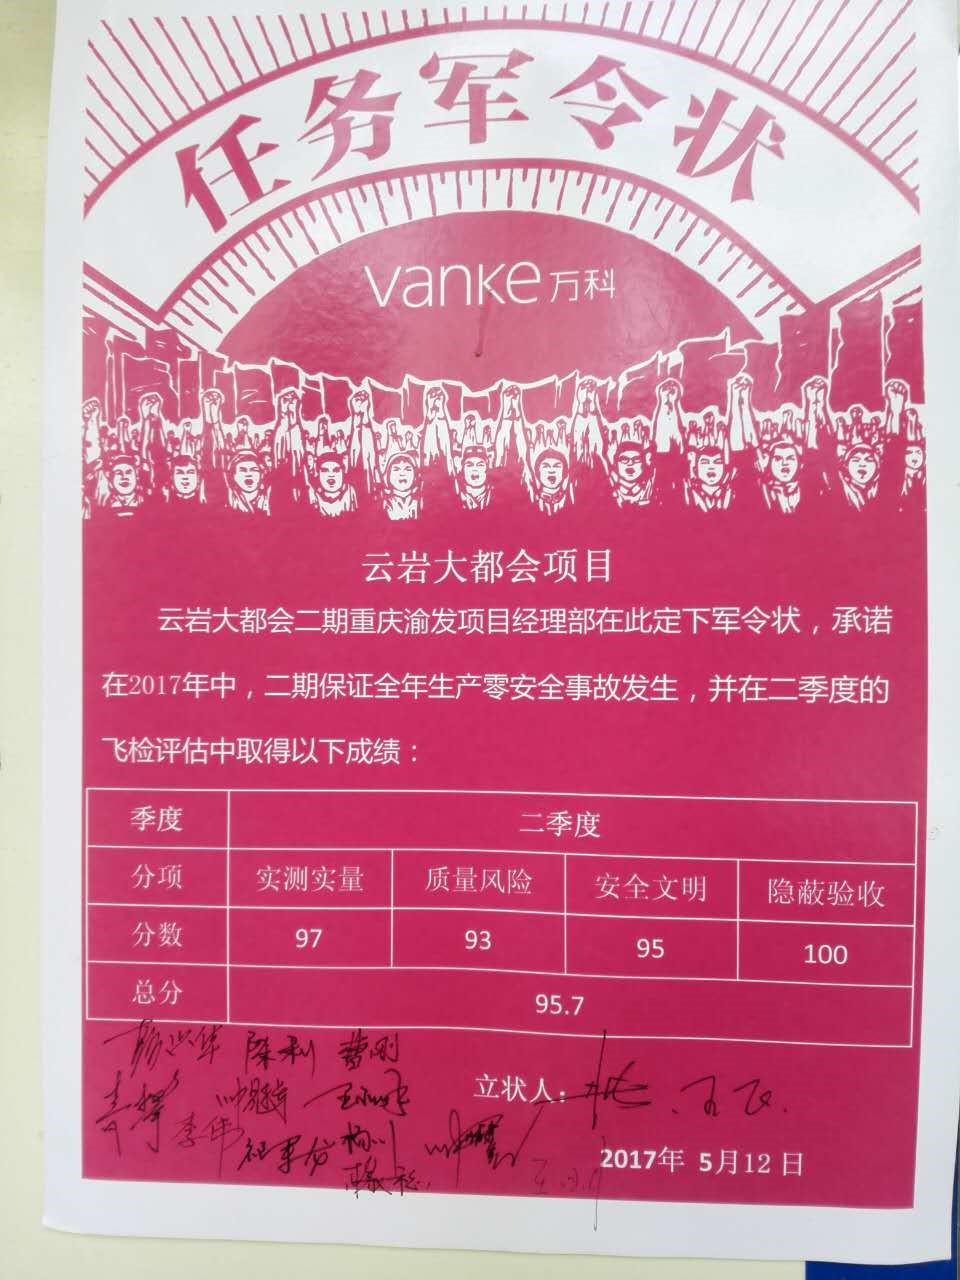 任务军令状
vanke 万科
云岩大都会项目
云岩大都会二期重庆渝发项目经理部在此定下军令状，承诺
在2017年中，二期保证全年生产零安全事故发生，并在二季度的
飞检评估中取得以下成绩：
季度 二季度
分项 实测实量 质量风险 安全文明 隐蔽验收
分数 97 93 95 100
总分 95.7
陈利 曹刚
立状人：
李伟
杨川
2017年 5月12日